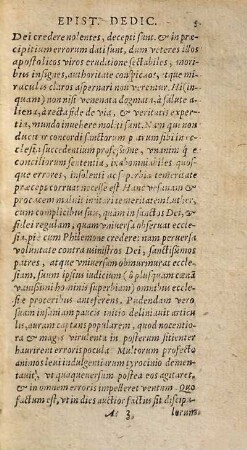 EPIST. DEDIC. 5
Dei credere nolentes, decepti sunt, & in præ-
cipitium errorum dati sunt, dum veteres illos
apostolicos viros eruditione spectabiles, mori-
bus insignes, authoritate conspicuos, atque mi-
raculis claros aspernari non verentur. Hi (in-
quam) non nisi venenata dogmata, à salute a-
liena, à recta fide devia, & veritatis exper-
tia, mundo invehere moliti sunt. Nam qui non
ducit concordi sanctorum patrum sibi in ec-
clesia succedentium professione, unanimique
conciliorum sententia, in abominabiles quos-
que errores, insolenti ac superba temeritate
præceps corruat necesse est. Hanc
procacem maluit imitari temeritatem Luther,
cum complicibus suis, quam in sanctos Dei, &
fidei regulam, quam universa observat eccle-
sia, pie cum Philemone credere: nam perversa
voluntate contra ministros Dei, sanctissimos
patres, atque universam obmurmurat eccle-
siam, suum ipsius iudicium (ô plus quam cæcā
vanissimi hominis superbiam) omnibus eccle-
siæ proceribus anteferens. Pudendam vero
suam insaniam paucis initio delimavit articu-
lis, auram captans popularem, quo nocentio-
ra & magis virulenta in posterum sitienter
haurirent erroris pocula. Multorum profecto
animos levi indulgentiarum tyrocinio demen-
tavit, ut quaquaversum postea eos agitaret,
& in omnem erroris impelleret ventum. Quo
factum est, ut in dies auctior factus sit discipu-
A 3 lorum